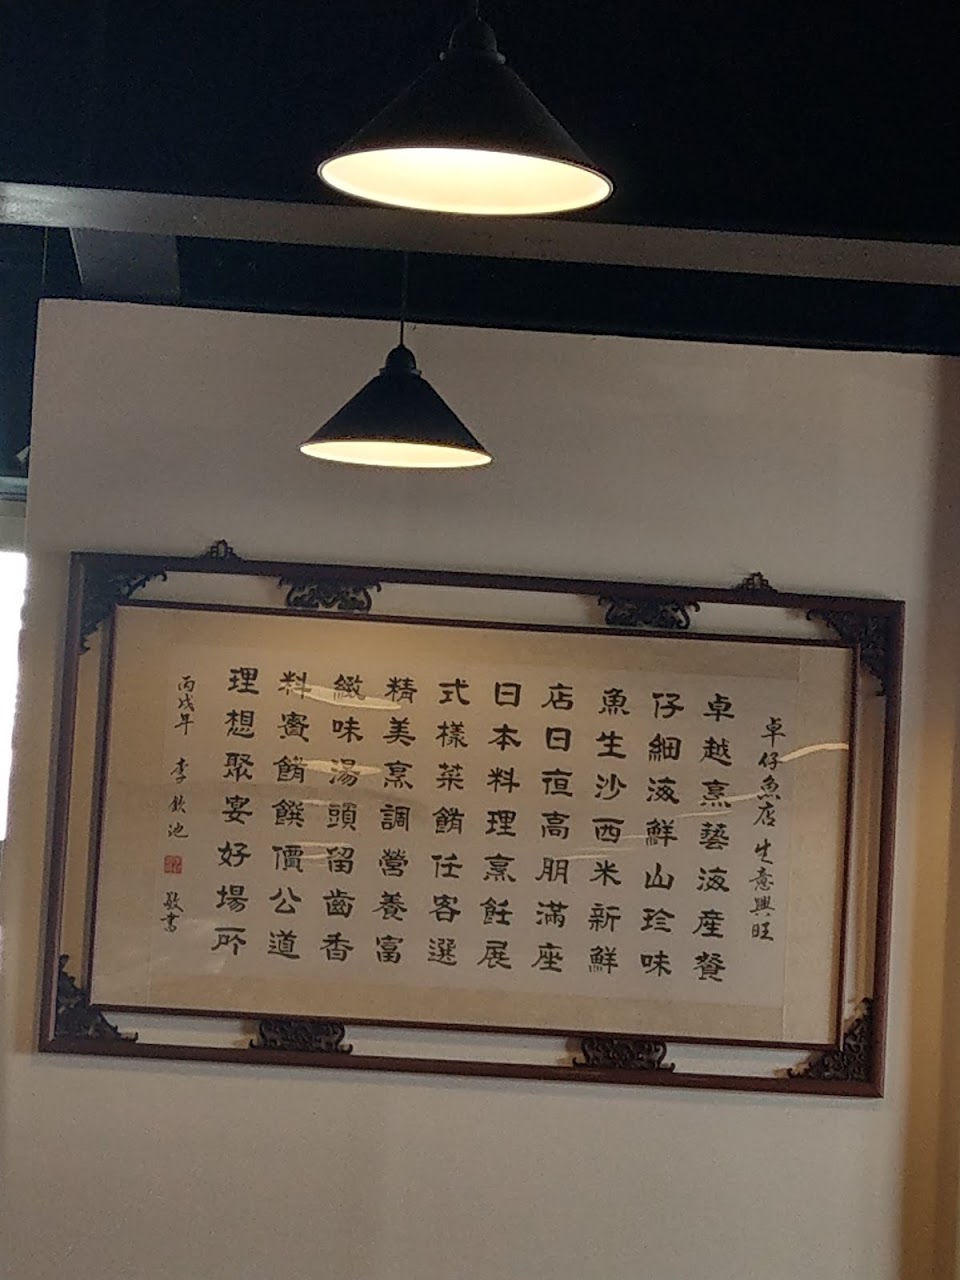 卓仔魚店 生意興旺
卓越烹藝海產餐
仔細海鮮山珍味
魚生沙西米新鮮
店日夜高朋滿座
日本料理烹飪展
式樣菜餚任客選
精美烹調營養富
緻味湯頭留齒香
料實餚饌價公道
理想聚宴好場所
丙戌年 李欽池 敬書